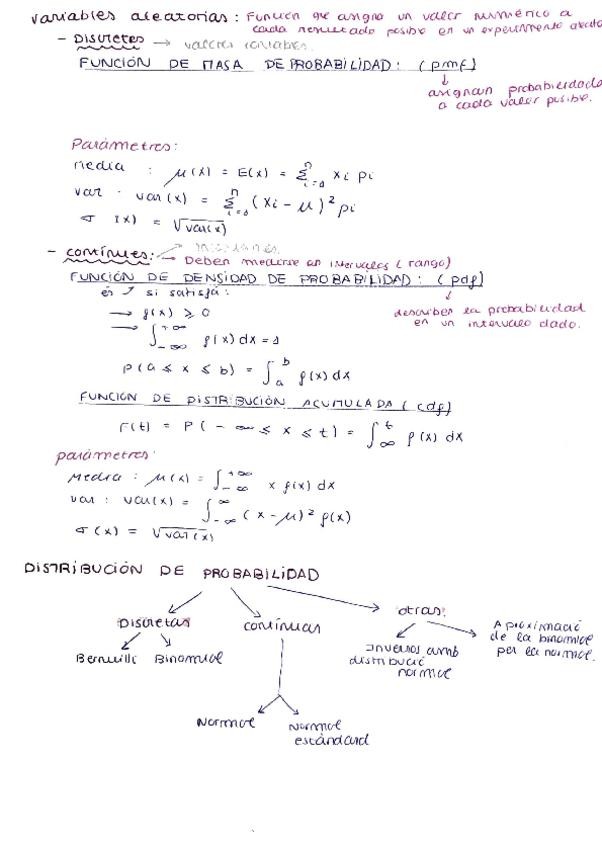 variables aleatorias: Función que asigna un valor numérico a
cada resultado posible en un experimento aleato
- Discretes → valores contables.
FUNCIÓN DE MASA DE PROBABILIDAD: (pmf)
↓
asignan probabilidada
a cada valor posible.
Parámetros:
media : μ(x) = E(x) = Σⁿᵢ₌₀ xi pi
var : var(x) = Σⁿᵢ₌₀ (xi - μ)² pi
σ (x) = √var(x)
- contínues:
→ Deben medirse en intervalos (rango)
FUNCIÓN DE DENSIDAD DE PROBABILIDAD: (pdf)
és f si satisfá:
→ f(x) ≥ 0
→ ∫₋∞⁺∞ f(x) dx = 1
describen la probabilidad
en un intervalo dado.
P(a ≤ x ≤ b) = ∫ₐᵇ f(x) dx
FUNCION DE DISTRIBUCIÓN ACUMULADA (cdf)
F(t) = P(-∞ ≤ x ≤ t) = ∫∞ᵗ f(x) dx
parámetros:
Media : μ(x) = ∫₋∞⁺∞ x f(x) dx
var : var(x) = ∫₋∞^∞ (x - μ)² f(x)
σ (x) = √var(x)
DISTRIBUCIÓN DE PROBABILIDAD
Discretas continuas otras:
Bernuilli Binomial
Inversos amb
distribució
normal
Aproximació
de la binomial
per la normal.
Normal
Normal
estàndard